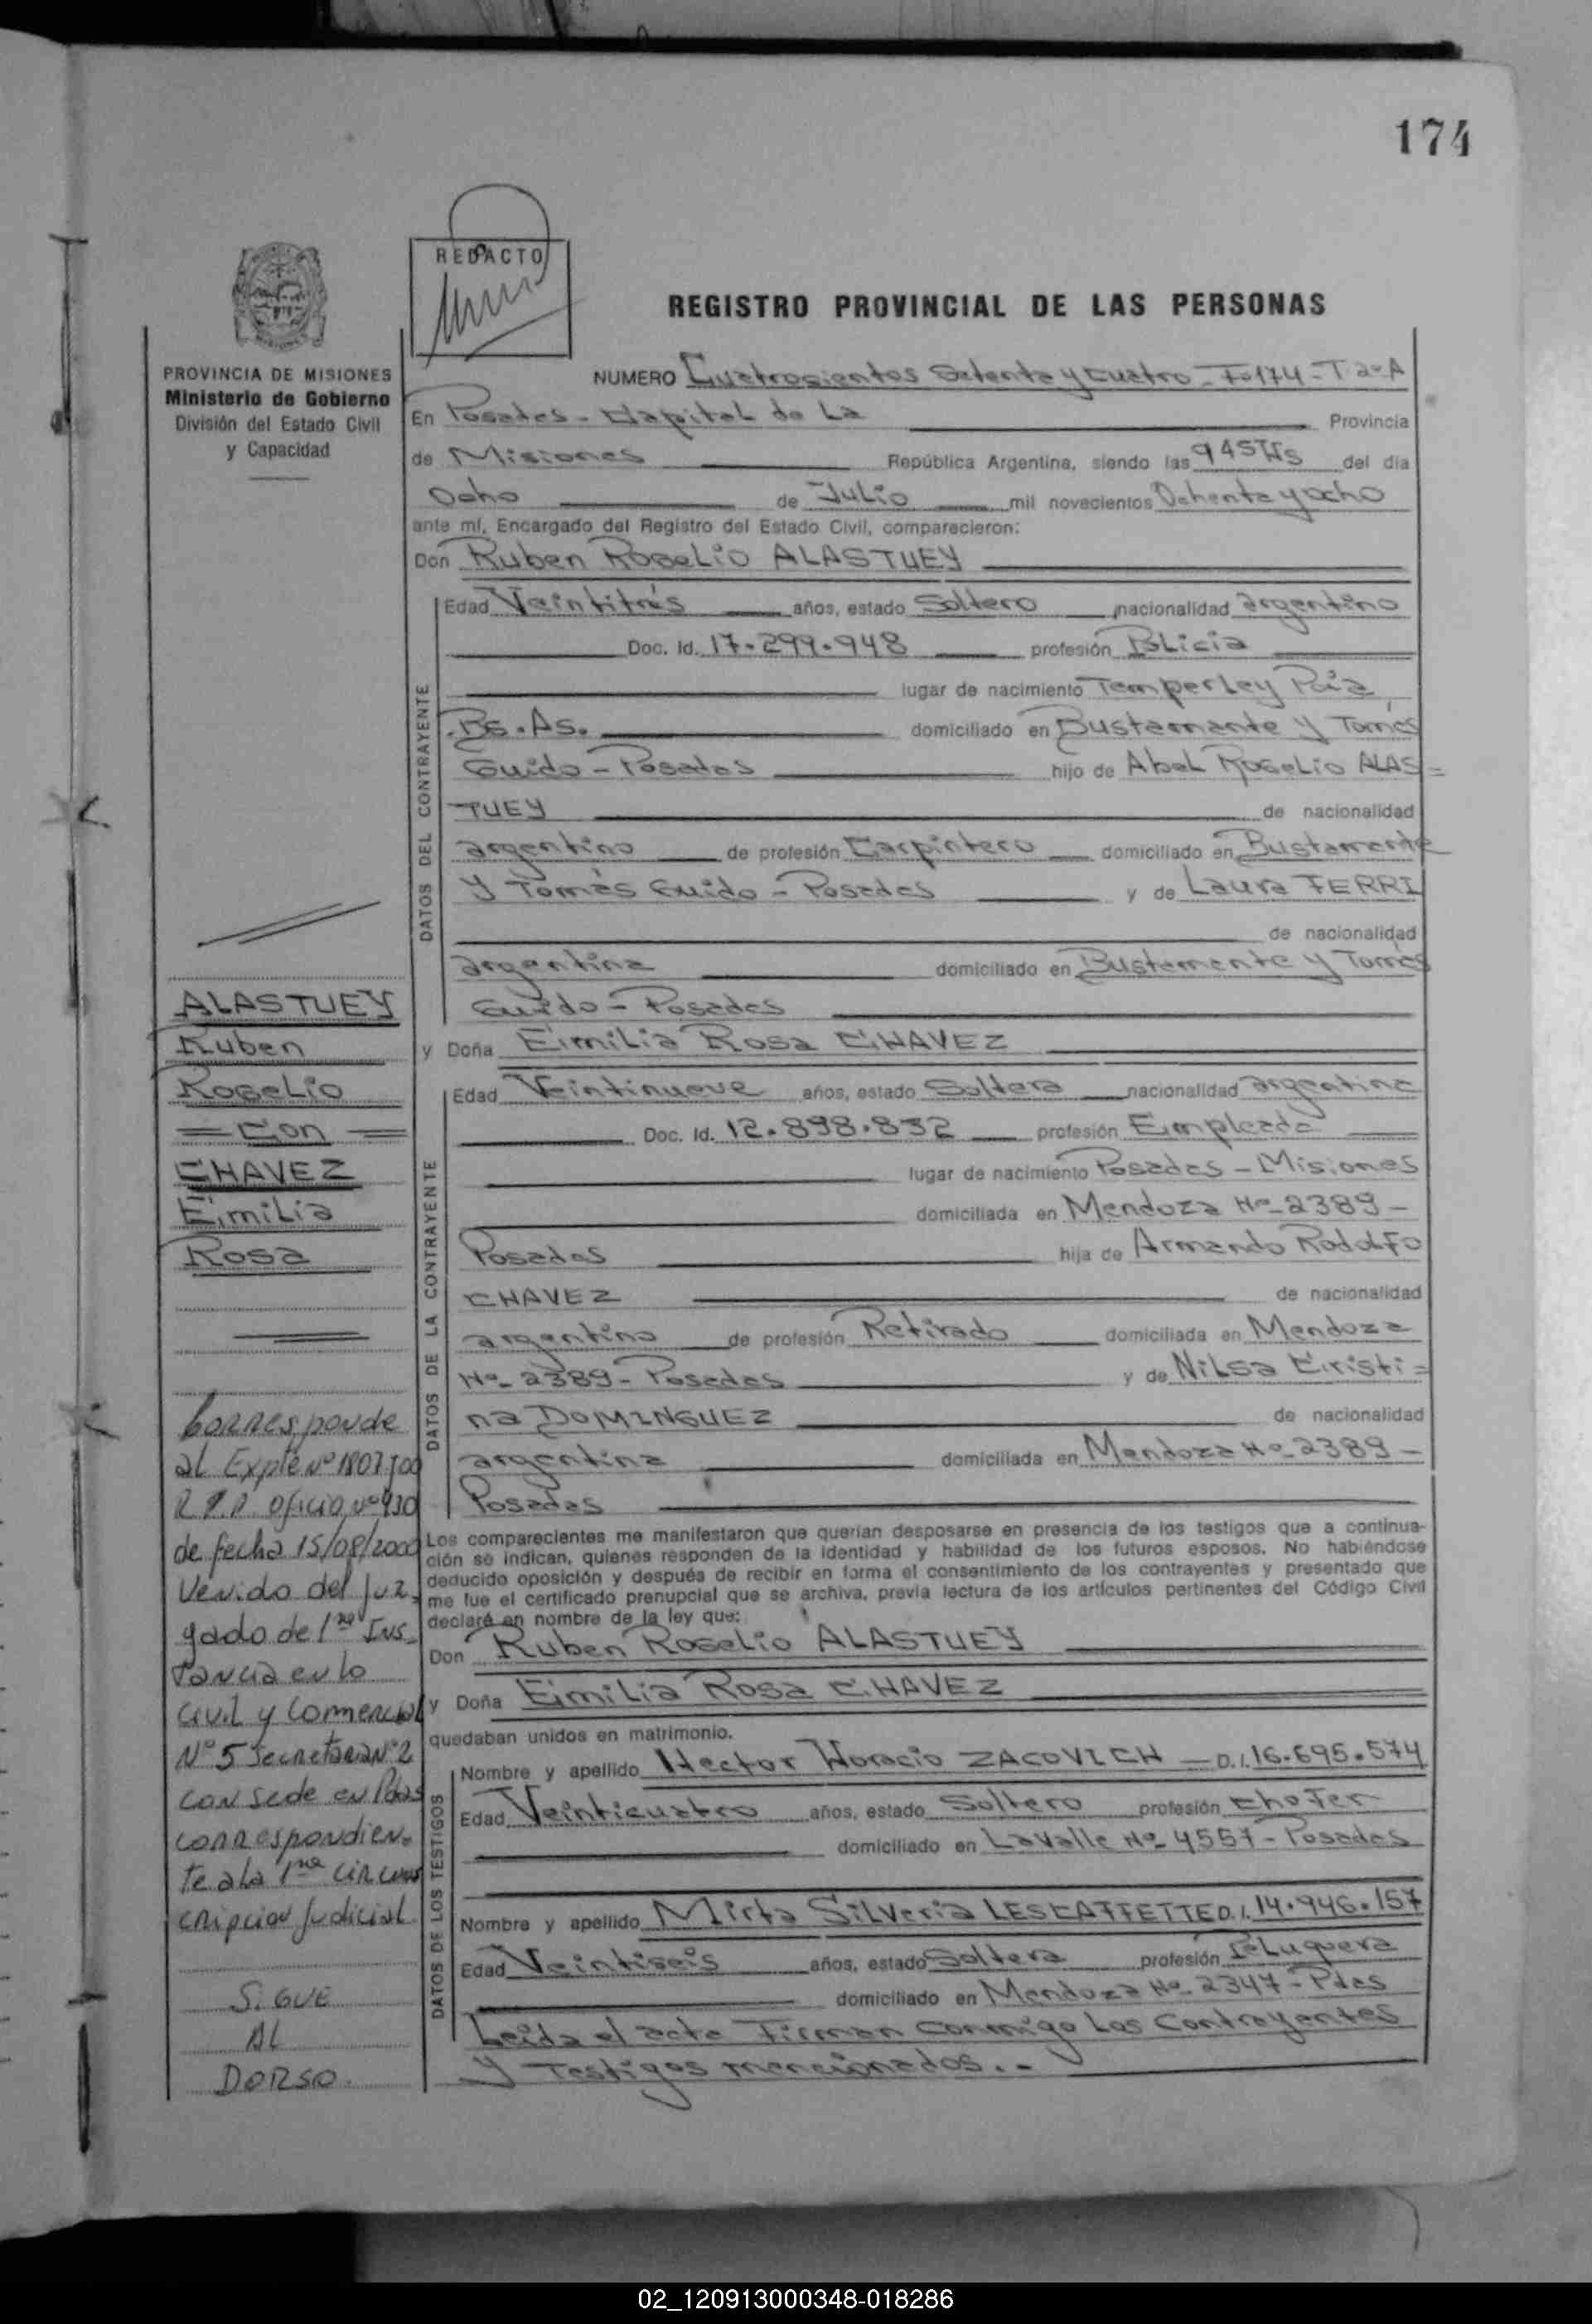 174
REDACTO
REGISTRO PROVINCIAL DE LAS PERSONAS
PROVINCIA DE MISIONES
Ministerio de Gobierno
División del Estado Civil
y Capacidad
NUMERO Cuatrocientos Setenta y cuatro - Fo 174 - T 2º A
En Posadas - Capital de La Provincia
de Misiones República Argentina, siendo las 945 Hs del día
Ocho de Julio mil novecientos Ochenta y ocho
ante mí, Encargado del Registro del Estado Civil, comparecieron:
Don Ruben Rogelio ALASTUEY
DATOS DEL CONTRAYENTE
Edad Veintitrés años, estado Soltero nacionalidad argentino
Doc. Id. 17.299.948 profesión Policia
lugar de nacimiento Temperley Pcia
Bs. As. domiciliado en Bustamante y Tomás
Guido - Posadas hijo de Abel Rogelio ALAS=
TUEY de nacionalidad
argentino de profesión Carpintero domiciliado en Bustamante
y Tomás Guido - Posadas y de Laura FERRI
de nacionalidad
argentina domiciliado en Bustamante y Tomás
Guido - Posadas
y Doña Emilia Rosa CHAVEZ
DATOS DE LA CONTRAYENTE
Edad Veintinueve años, estado Soltera nacionalidad argentina
Doc. Id. 12.898.832 profesión Empleada
lugar de nacimiento Posadas - Misiones
domiciliada en Mendoza Nº 2389 -
Posadas hija de Armando Rodolfo
CHAVEZ de nacionalidad
argentino de profesión Retirado domiciliada en Mendoza
Nº 2389 - Posadas y de Nilsa Cristi=
na DOMINGUEZ de nacionalidad
argentina domiciliada en Mendoza Nº 2389 -
Posadas
Los comparecientes me manifestaron que querían desposarse en presencia de los testigos que a continua-
ción se indican, quienes responden de la identidad y habilidad de los futuros esposos. No habiéndose
deducido oposición y después de recibir en forma el consentimiento de los contrayentes y presentado que
me fue el certificado prenupcial que se archiva, previa lectura de los artículos pertinentes del Código Civil
declaré en nombre de la ley que:
Don Ruben Rogelio ALASTUEY
y Doña Emilia Rosa CHAVEZ
quedaban unidos en matrimonio.
DATOS DE LOS TESTIGOS
Nombre y apellido Hector Horacio ZACOVICH - D.I. 16.695.574
Edad Veinticuatro años, estado Soltero profesión chofer
domiciliado en Lavalle Nº 4557 - Posadas
Nombre y apellido Mirta Silveria LESCAFFETTE D.I. 14.946.157
Edad Veintiseis años, estado Soltera profesión Peluquera
domiciliado en Mendoza Nº 2347 - Pdas
Leída el acta Firman conmigo Los Contrayentes
y Testigos mencionados.-
ALASTUEY
Ruben
Rogelio
= Con =
CHAVEZ
Emilia
Rosa
Corresponde
al Expte Nº 1807/00
R.P.P. oficio nº 930
de fecha 15/08/2000
Venido del Juz-
gado de 1ra Ins-
tancia en lo
Civil y Comercial
Nº 5 Secretaria Nº 2
con sede en Pdas
correspondien-
te a la 1ra circuns
cripcion Judicial
SIGUE
AL
DORSO.
02_120913000348-018286